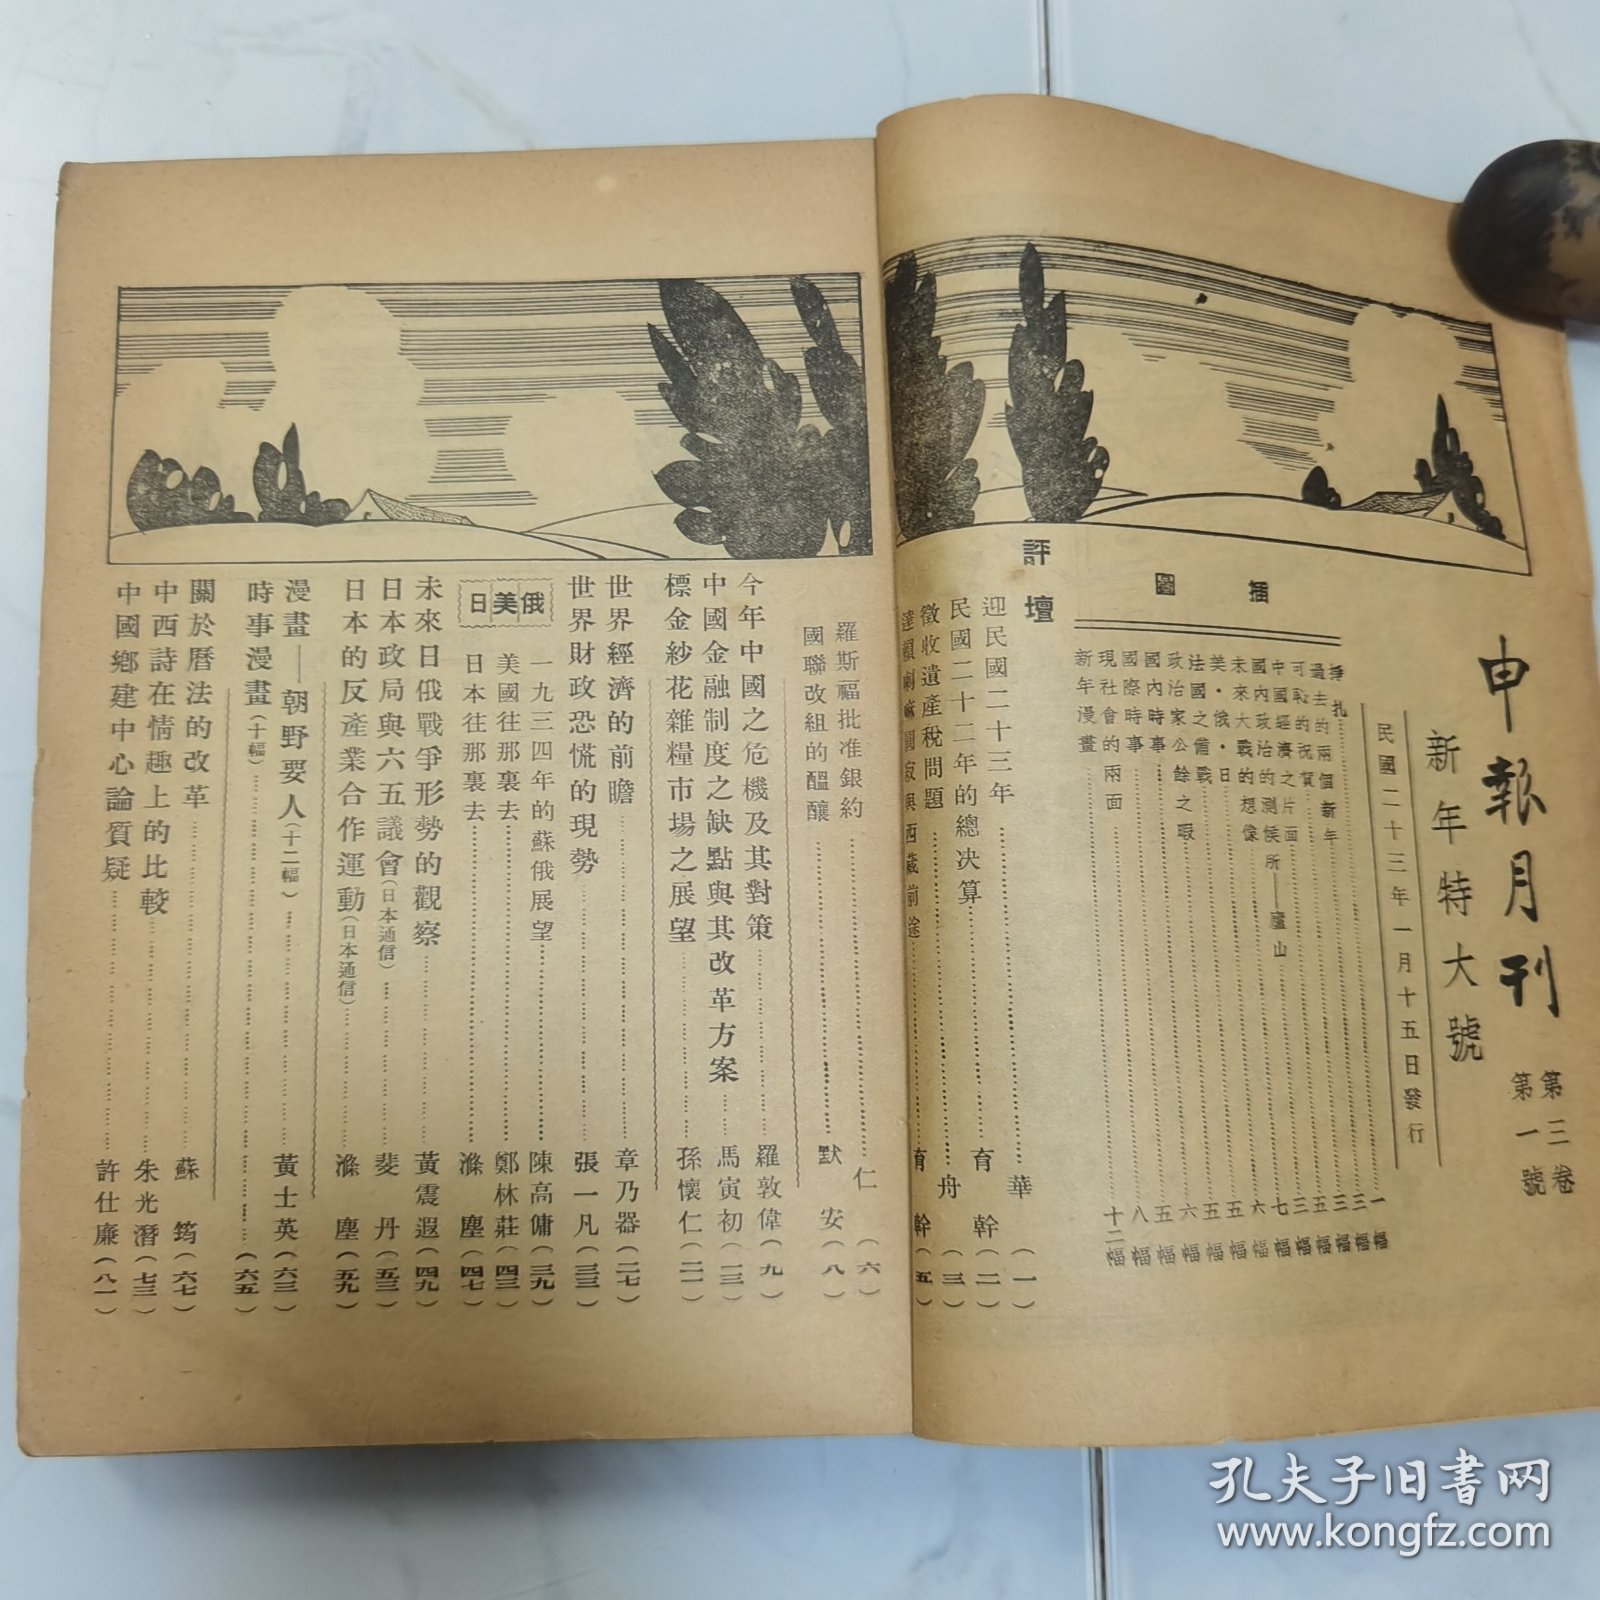 申報月刊 第三卷 第一號
新年特大號
民國二十三年一月十五日發行
插圖
掙扎……一幅
過去的兩個新年……三幅
可恥的祝賀……三幅
中國經濟之片面……五幅
國內政治的測候所——廬山……七幅
未來大戰的想像……六幅
美・俄・日……五幅
法國之備戰……五幅
政治家公餘之暇……六幅
國內時事……五幅
國際時事……八幅
現社會的兩面
新年漫畫……十二幅
評壇
迎民國二十三年……華(一)
民國二十二年的總決算……育幹(二)
徵收遺產稅問題……舟(三)
達賴喇嘛圓寂與西藏前途……育幹(五)
羅斯福批准銀約……仁(六)
國聯改組的醞釀……默安(八)
今年中國之危機及其對策……羅敦偉(九)
中國金融制度之缺點與其改革方案……馬寅初(一三)
標金紗花雜糧市場之展望……孫懷仁(二一)
世界經濟的前瞻……章乃器(二七)
世界財政恐慌的現勢……張一凡(三三)
俄美日
一九三四年的蘇俄展望……陳高傭(三九)
美國往那裏去……鄭林莊(四三)
日本往那裏去……滌塵(四七)
未來日俄戰爭形勢的觀察……黃震遐(四九)
日本政局與六五議會(日本通信)……斐丹(五三)
日本的反產業合作運動(日本通信)……滌塵(五九)
漫畫——朝野要人(十二幅)……黃士英(六三)
時事漫畫(十幅)……(六五)
關於曆法的改革……蘇筠(六七)
中西詩在情趣上的比較……朱光潛(七三)
中國鄉建中心論質疑……許仕廉(八一)
孔夫子旧书网
www.kongfz.com